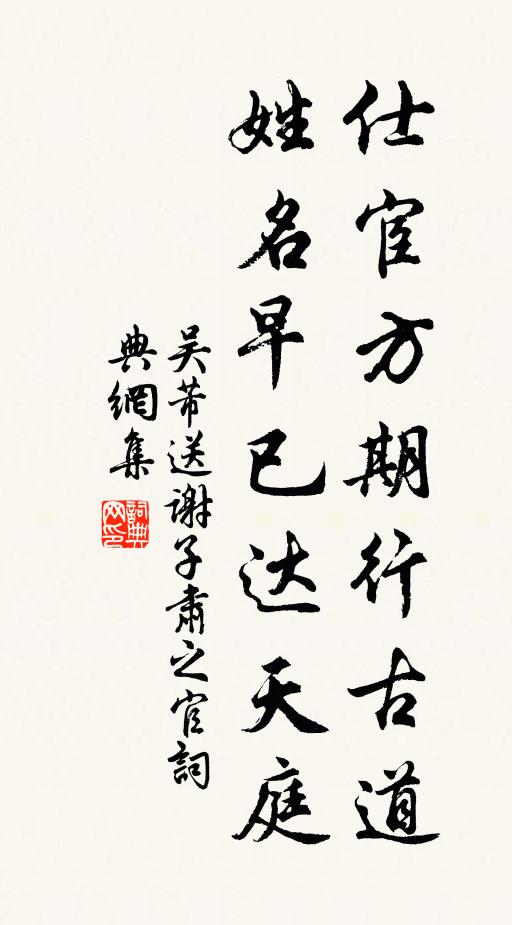 仕宦方期行古道
姓名早已达天庭
吴芾送谢子肃之官詞
典網集
詞典
网印